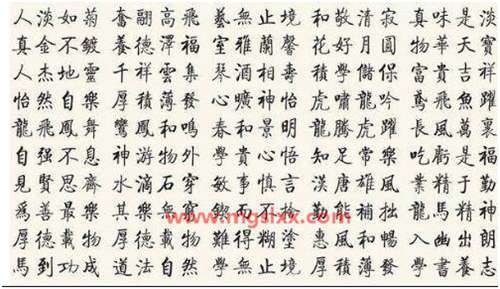 人淡如菊奮翮高飛藝無止境和敬清寂真味是淡
真金不鍍養德澤福室雅蘭馨花好月圓物華天寶
人杰地靈千祥雲集琴酒相壽積學儲保富貴吉祥
怡然自樂厚積薄發心曠神怡虎嘯龍吟鳶飛魚躍
龍飛鳳舞鸞鳳和鳴春和景明龍騰虎躍長風萬裏
自强不息神游物外學貴心悟知足常樂吃虧是福
見賢思齋水滴石穿敏事慎言漢唐雄風業精于勤
爲善最樂其樂無窮鍥而不捨勤能補拙龍馬精神
www.mgslxx.com
厚德載物厚德載物難得糊塗惠風和暢入幽出朗
馬到功成道法自然學無止境厚積薄發學書養志